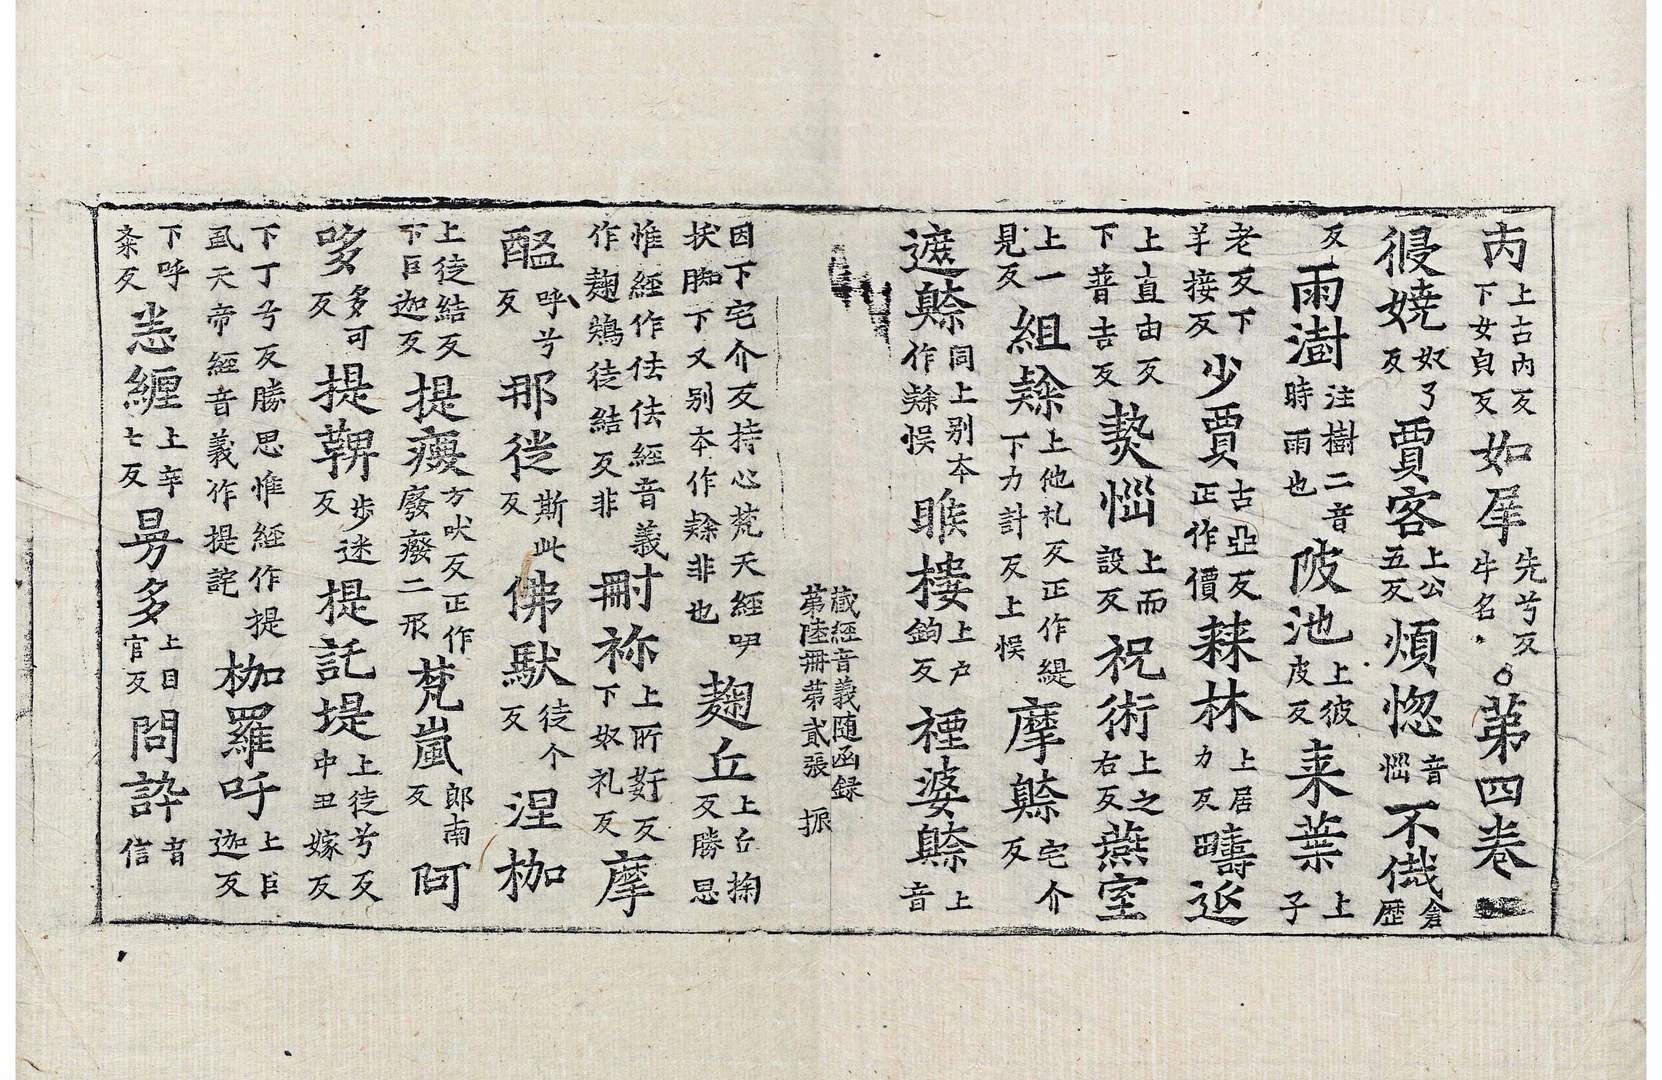 丙上古內反下女貞反如犀先兮反牛名第四卷
嬈奴了反賈客上公五反煩惚音惱不倉歴
反雨澍注樹二音時雨也陂池上彼皮反来葉上子
老反下羊接反少賈古亞反正作價林上居力反疇返
上直由反下普吉反惱上而設反祝術上之右反燕室
上一見反組上他礼反正作緹下力計反上悮摩宅介反
遮同上别本作悮睺樓上户鈎反婆上音
蔵經音義随函録第陸冊第貳張振
因下宅介反持心梵天經吚狀脚下又别本作非也丘上丘掬反勝思
惟經作佉佉經音義作徒結反非祢上所奸反下奴礼反摩
醯呼兮反那徙斯此反佛馱徒个反涅枷
上徒結反下巨迦反提方吠反正作廢癈二形梵嵐郎南反阿
哆多可反提鞞步迷反提託堤上徒兮反中丑嫁反
下丁兮反勝思惟經作提虱天帝經音義作提詫枷羅呼上巨迦反
下呼恙纏上羊七反多上目官反問訡音信